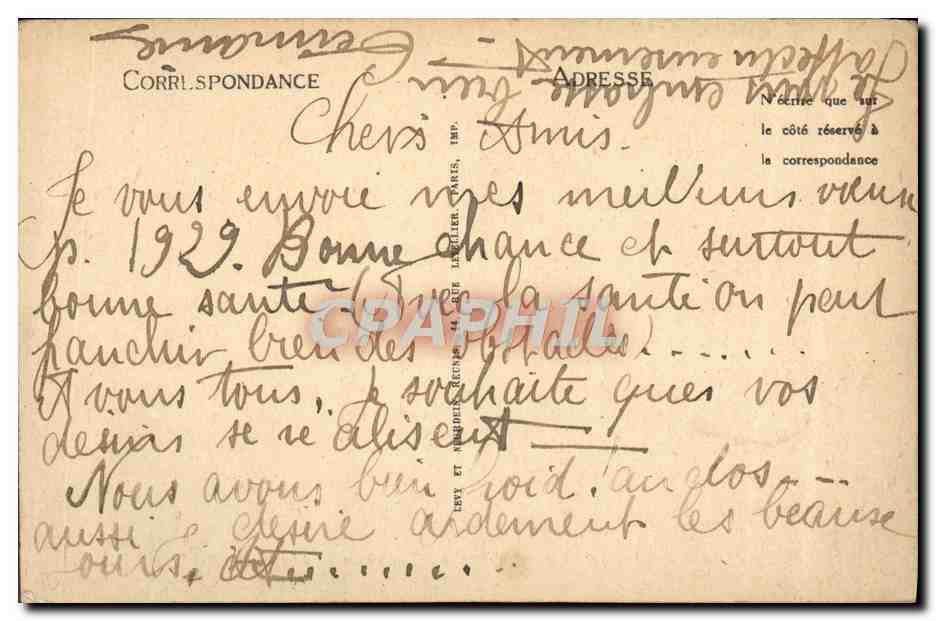 CORRESPONDANCE
ADRESSE
N'écrire que sur
le côté réservé à
la correspondance
Chers Amis.
Je vous envoie mes meilleurs vœux
p. 1929. Bonne chance et surtout
bonne santé (Avec la santé on peut
franchir bien des obstacles).......
A vous tous, je souhaite ques vos
desirs se réalisent
Nous avons bien froid! au dos...
aussi je désire ardement les beause
jours, et........
Je vous embrasse bien
affectueusement -
Germaine
LEVY ET NEURDEIN REUNIS, 44, RUE LETELLIER, PARIS, IMP.
CPAPHIL